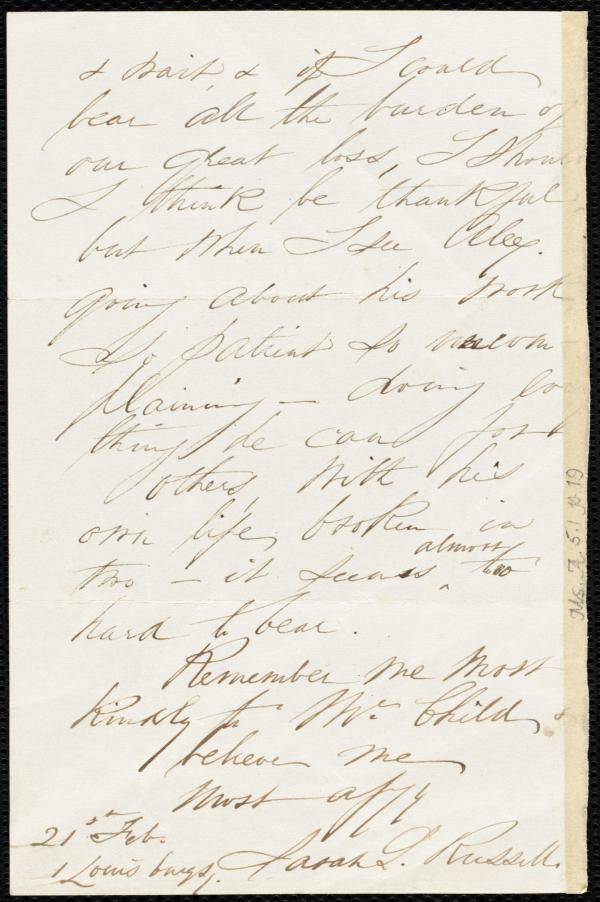 & wait, & if I could
bear all the burden of
our great loss, I shoul
I think be thankful
but when I see Alex.
going about his work
so patient so uncom-
plaining – doing
thing he can for
others, with his
own life, broken in
two – it seems almost too
hard to bear.
Remember me most
kindly to Mr. Child, &
believe me
most affy
21st Feb.
1 Louisburg sq. Sarah S. Russell.
Ms. A. 5.1 p. 19